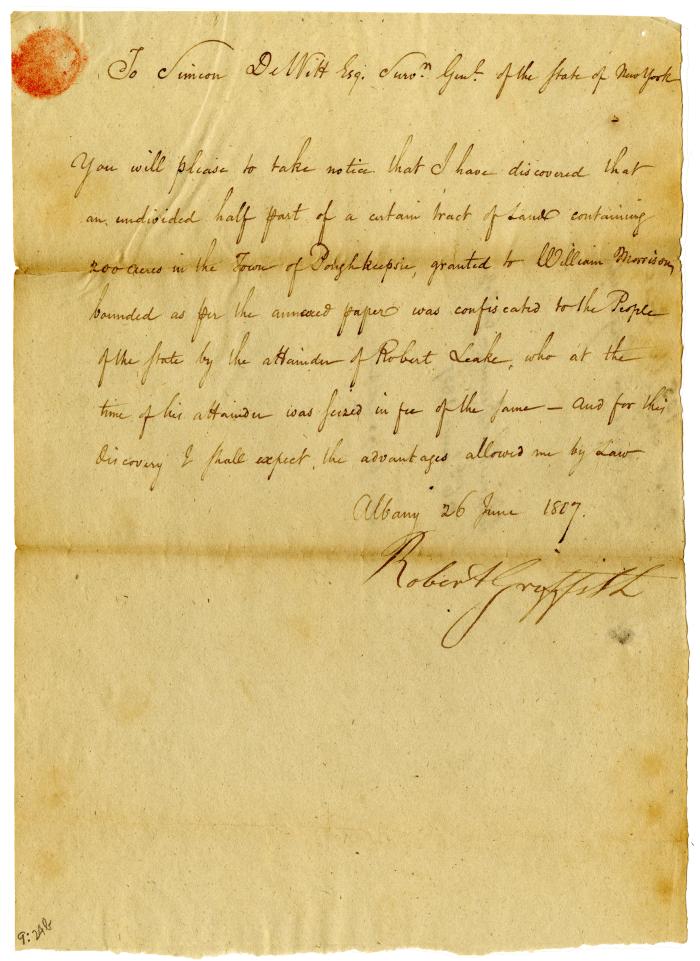 To Simeon DeWitt Esq. Survr. Genl. of the State of New York
You will please to take notice that I have discovered that
an undivided half part of a certain tract of Land containing
200 acres in the Town of Poughkeepsie, granted to William Morrison,
bounded as per the annexed paper was confiscated to the People
of the State by the attainder of Robert Leake, who at the
time of his attainder was seized in fee of the same — and for this
discovery I shall expect, the advantages allowed me by Law
Albany 26 June 1807.
Robert Griffith
9:248